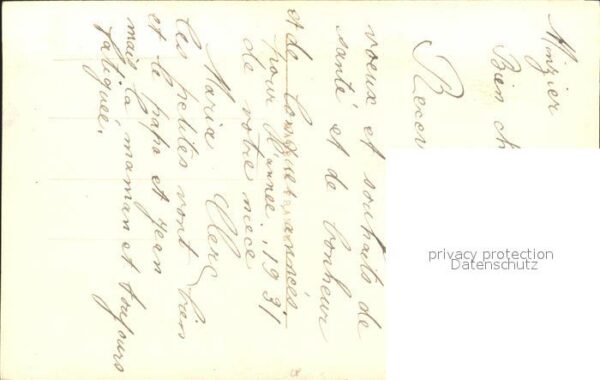 Minzier
Bien ch
Recev
voeux et souhaits de
santé et de bonheur
et de longues années
pour l'année 1931
de votre niece
Maria Clerc
les petites vont bien
et le papa et Jean
mais la maman et toujours
fatiguée.
privacy protection
Datenschutz